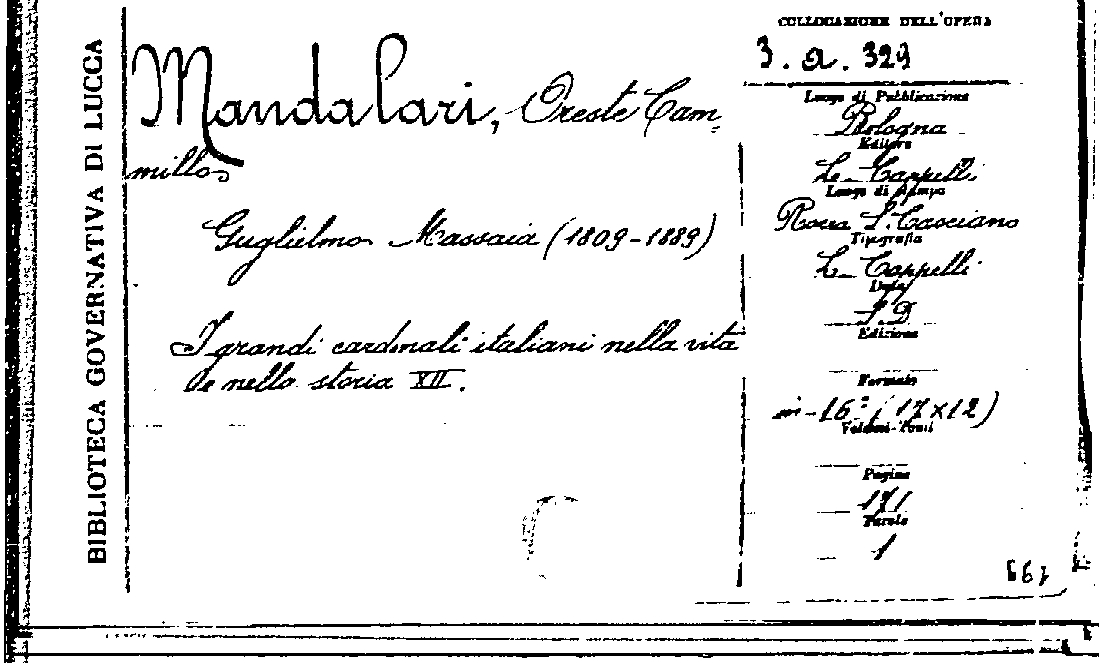 BIBLIOTECA GOVERNATIVA DI LUCCA
Mandalari, Oreste Cam=
millo
Guglielmo Massaia (1809-1889)
I grandi cardinali italiani nella vita
e nella storia XII.
COLLOCAZIONE DELL'OPERA
3. a. 329
Luogo di Pubblicazione
Bologna
Editore
L. Cappelli
Luogo di stampa
Rocca S. Casciano
Tipografia
L. Cappelli
Data
S. D.
Edizione
Formato
in-16° (17x12)
Volumi-Tomi
Pagine
171
Tavole
1